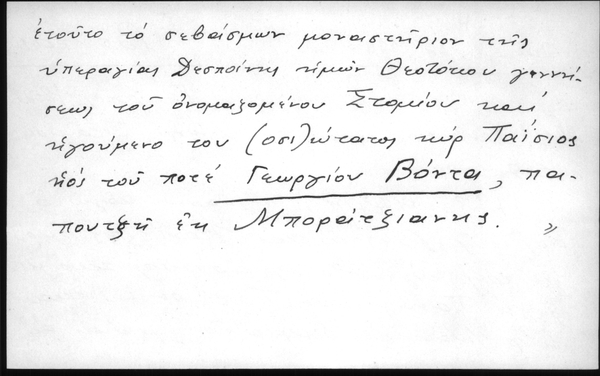 ἐτοῦτο τό σεβάσμιων μοναστηρίον τῆς
ὑπεραγίας Δεσποίνης ἡμῶν Θεοτόκου γεννή-
σεως τοῦ ὀνομαζομένου Στομίου καί
ἡγούμενο του (οσι)ώτατος κύρ Παΐσιος
ὑός τοῦ ποτέ Γεωργίου Βόντα, πα-
πουτζῆ ἐκ Μποράτζιανης. »